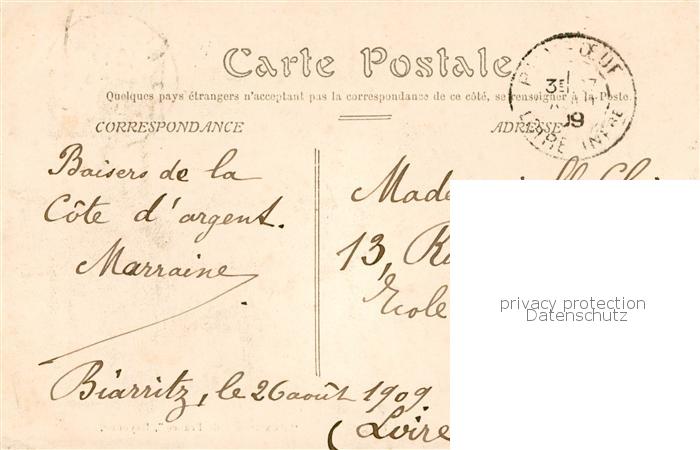 Carte Postale
Quelques pays étrangers n'acceptant pas la correspondance de ce côté, se renseigner à la Poste.
CORRESPONDANCE
ADRESSE
Baisers de la
Côte d'argent.
Marraine
Biarritz, le 26 août 1909
13,
Ecole
(Loire
3E
09
LOIRE INFRE
privacy protection
Datenschutz